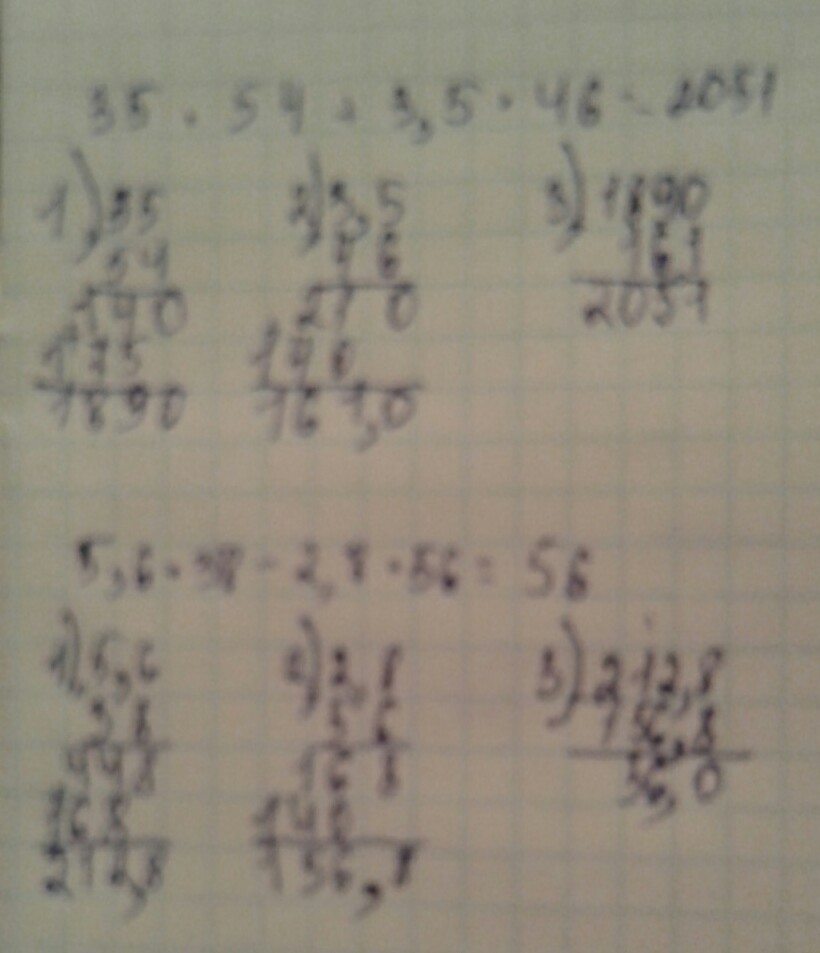 35 · 54 + 3,5 · 46 = 2051
1) 35 2) 3,5 3) 1890
54 46 161
140 210 2051
175 140
1890 161,0
5,6 · 38 - 2,8 · 56 = 56
1) 5,6 2) 2,8 3) 212,8
38 56 156,8
448 168 56,0
168 140
212,8 156,8